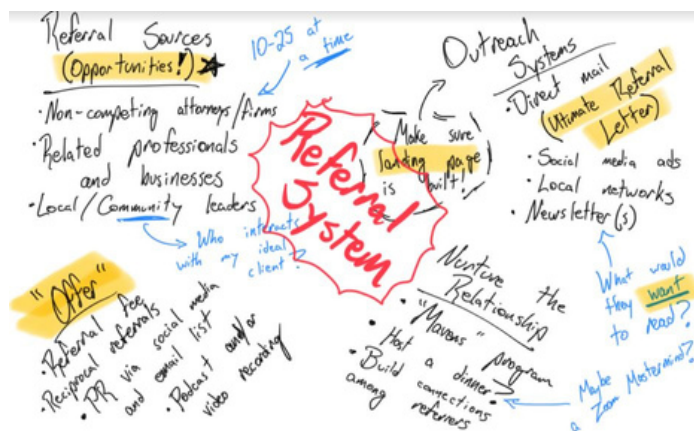 Referral Sources
(Opportunities!)
• Non-competing attorneys/firms
• Related professionals
and businesses
• Local/Community leaders
10-25 at
a time
Who interacts
with my ideal
client?
Referral
System
Make sure
landing page
is built!
Outreach
Systems
• Direct mail
(Ultimate Referral
Letter)
• Social media ads
• Local networks
• Newsletter(s)
What would
they want
to read?
"Offer"
• Referral fee
• Reciprocal referrals
• PR via social media
and email list
• Podcast and/or
video recording
Nurture the
Relationship
• "Mavens" program
• Host a dinner
• Build connections
among referrers
Maybe
a Zoom Mastermind?